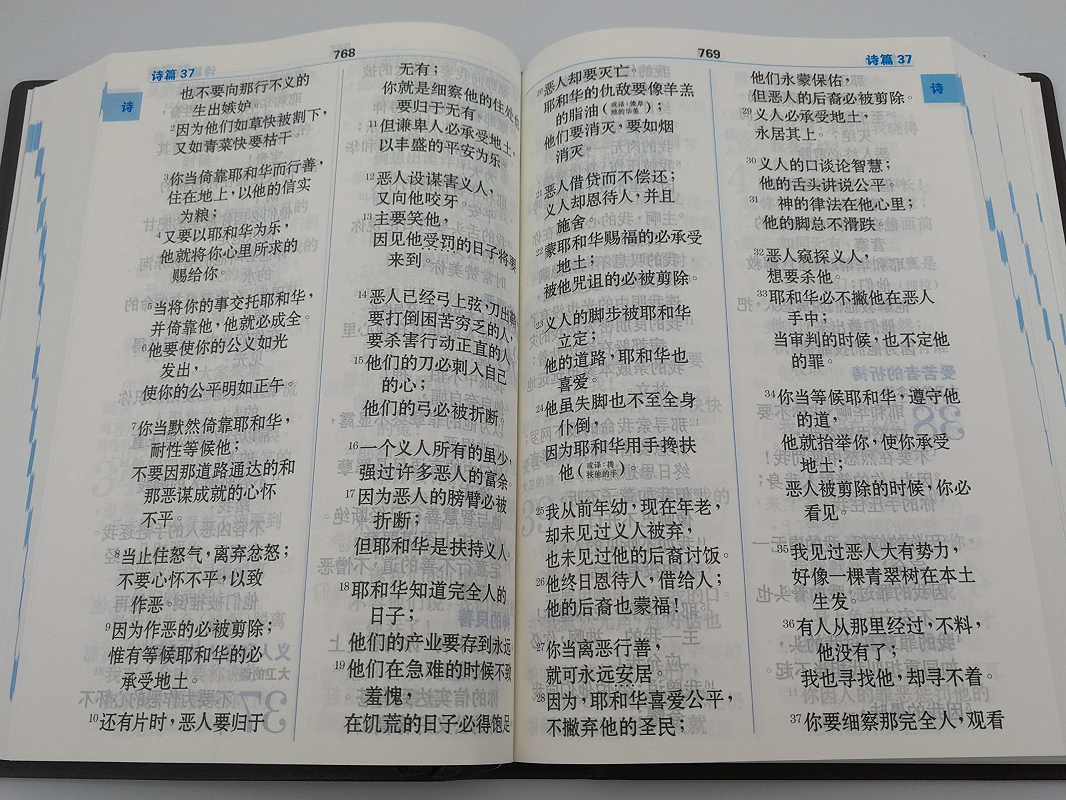 768
诗篇 37
诗
也不要向那行不义的
生出嫉妒。
2因为他们如草快被割下，
又如青菜快要枯干。
3你当倚靠耶和华而行善，
住在地上，以他的信实
为粮；
4又要以耶和华为乐，
他就将你心里所求的
赐给你。
5当将你的事交托耶和华，
并倚靠他，他就必成全。
6他要使你的公义如光
发出，
使你的公平明如正午。
7你当默然倚靠耶和华，
耐性等候他；
不要因那道路通达的和
那恶谋成就的心怀
不平。
8当止住怒气，离弃忿怒；
不要心怀不平，以致
作恶。
9因为作恶的必被剪除；
惟有等候耶和华的必
承受地土。
10还有片时，恶人要归于
无有；
你就是细察他的住处
要归于无有。
11但谦卑人必承受地土，
以丰盛的平安为乐。
12恶人设谋害义人，
又向他咬牙。
13主要笑他，
因见他受罚的日子将要
来到。
14恶人已经弓上弦，刀出
要打倒困苦穷乏的人，
要杀害行动正直的人。
15他们的刀必刺入自己
的心；
他们的弓必被折断。
16一个义人所有的虽少，
强过许多恶人的富余。
17因为恶人的膀臂必被
折断；
但耶和华是扶持义人
18耶和华知道完全人的
日子；
他们的产业要存到永远
19他们在急难的时候不致
羞愧，
在饥荒的日子必得饱足
769
诗篇 37
诗
20恶人却要灭亡。
耶和华的仇敌要像羊羔
的脂油（或译：像草地的华美）；
他们要消灭，要如烟
消灭。
21恶人借贷而不偿还；
义人却恩待人，并且
施舍。
22蒙耶和华赐福的必承受
地土；
被他咒诅的必被剪除。
23义人的脚步被耶和华
立定；
他的道路，耶和华也
喜爱。
24他虽失脚也不至全身
仆倒，
因为耶和华用手搀扶
他（或译：搀扶他的手）。
25我从前年幼，现在年老，
却未见过义人被弃，
也未见过他的后裔讨饭。
26他终日恩待人，借给人；
他的后裔也蒙福！
27你当离恶行善，
就可永远安居。
28因为，耶和华喜爱公平，
不撇弃他的圣民；
他们永蒙保佑，
但恶人的后裔必被剪除。
29义人必承受地土，
永居其上。
30义人的口谈论智慧；
他的舌头讲说公平。
31神的律法在他心里；
他的脚总不滑跌。
32恶人窥探义人，
想要杀他。
33耶和华必不撇他在恶人
手中；
当审判的时候，也不定他
的罪。
34你当等候耶和华，遵守他
的道，
他就抬举你，使你承受
地土；
恶人被剪除的时候，你必
看见。
35我见过恶人大有势力，
好像一棵青翠树在本土
生发。
36有人从那里经过，不料，
他没有了；
我也寻找他，却寻不着。
37你要细察那完全人，观看